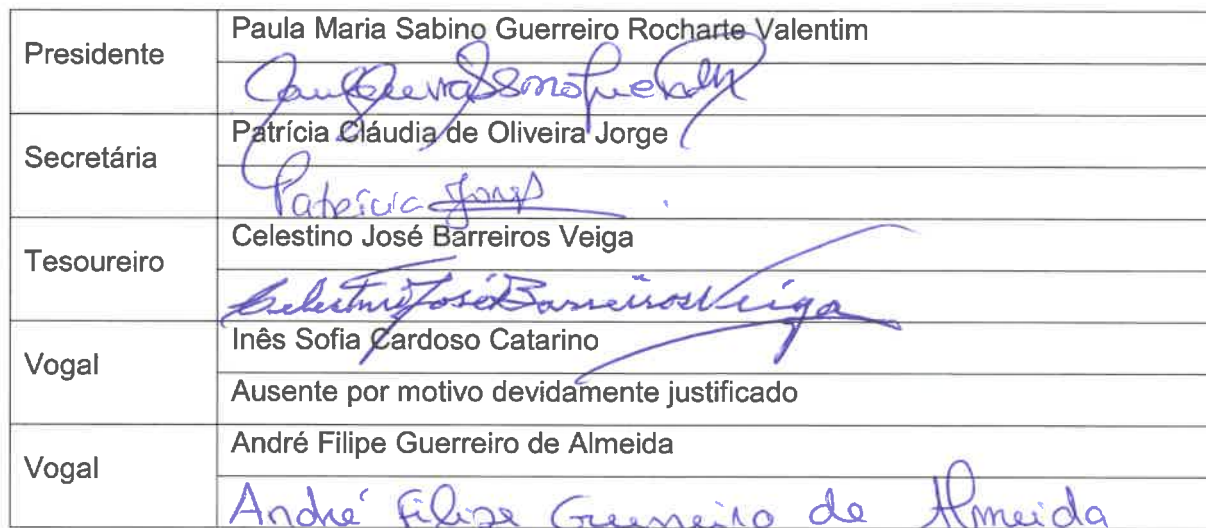 Presidente
Paula Maria Sabino Guerreiro Rocharte Valentim
Secretária
Patrícia Cláudia de Oliveira Jorge
Patrícia Jorge
Tesoureiro
Celestino José Barreiros Veiga
Celestino José Barreiros Veiga
Vogal
Inês Sofia Cardoso Catarino
Ausente por motivo devidamente justificado
Vogal
André Filipe Guerreiro de Almeida
André Filipe Guerreiro de Almeida